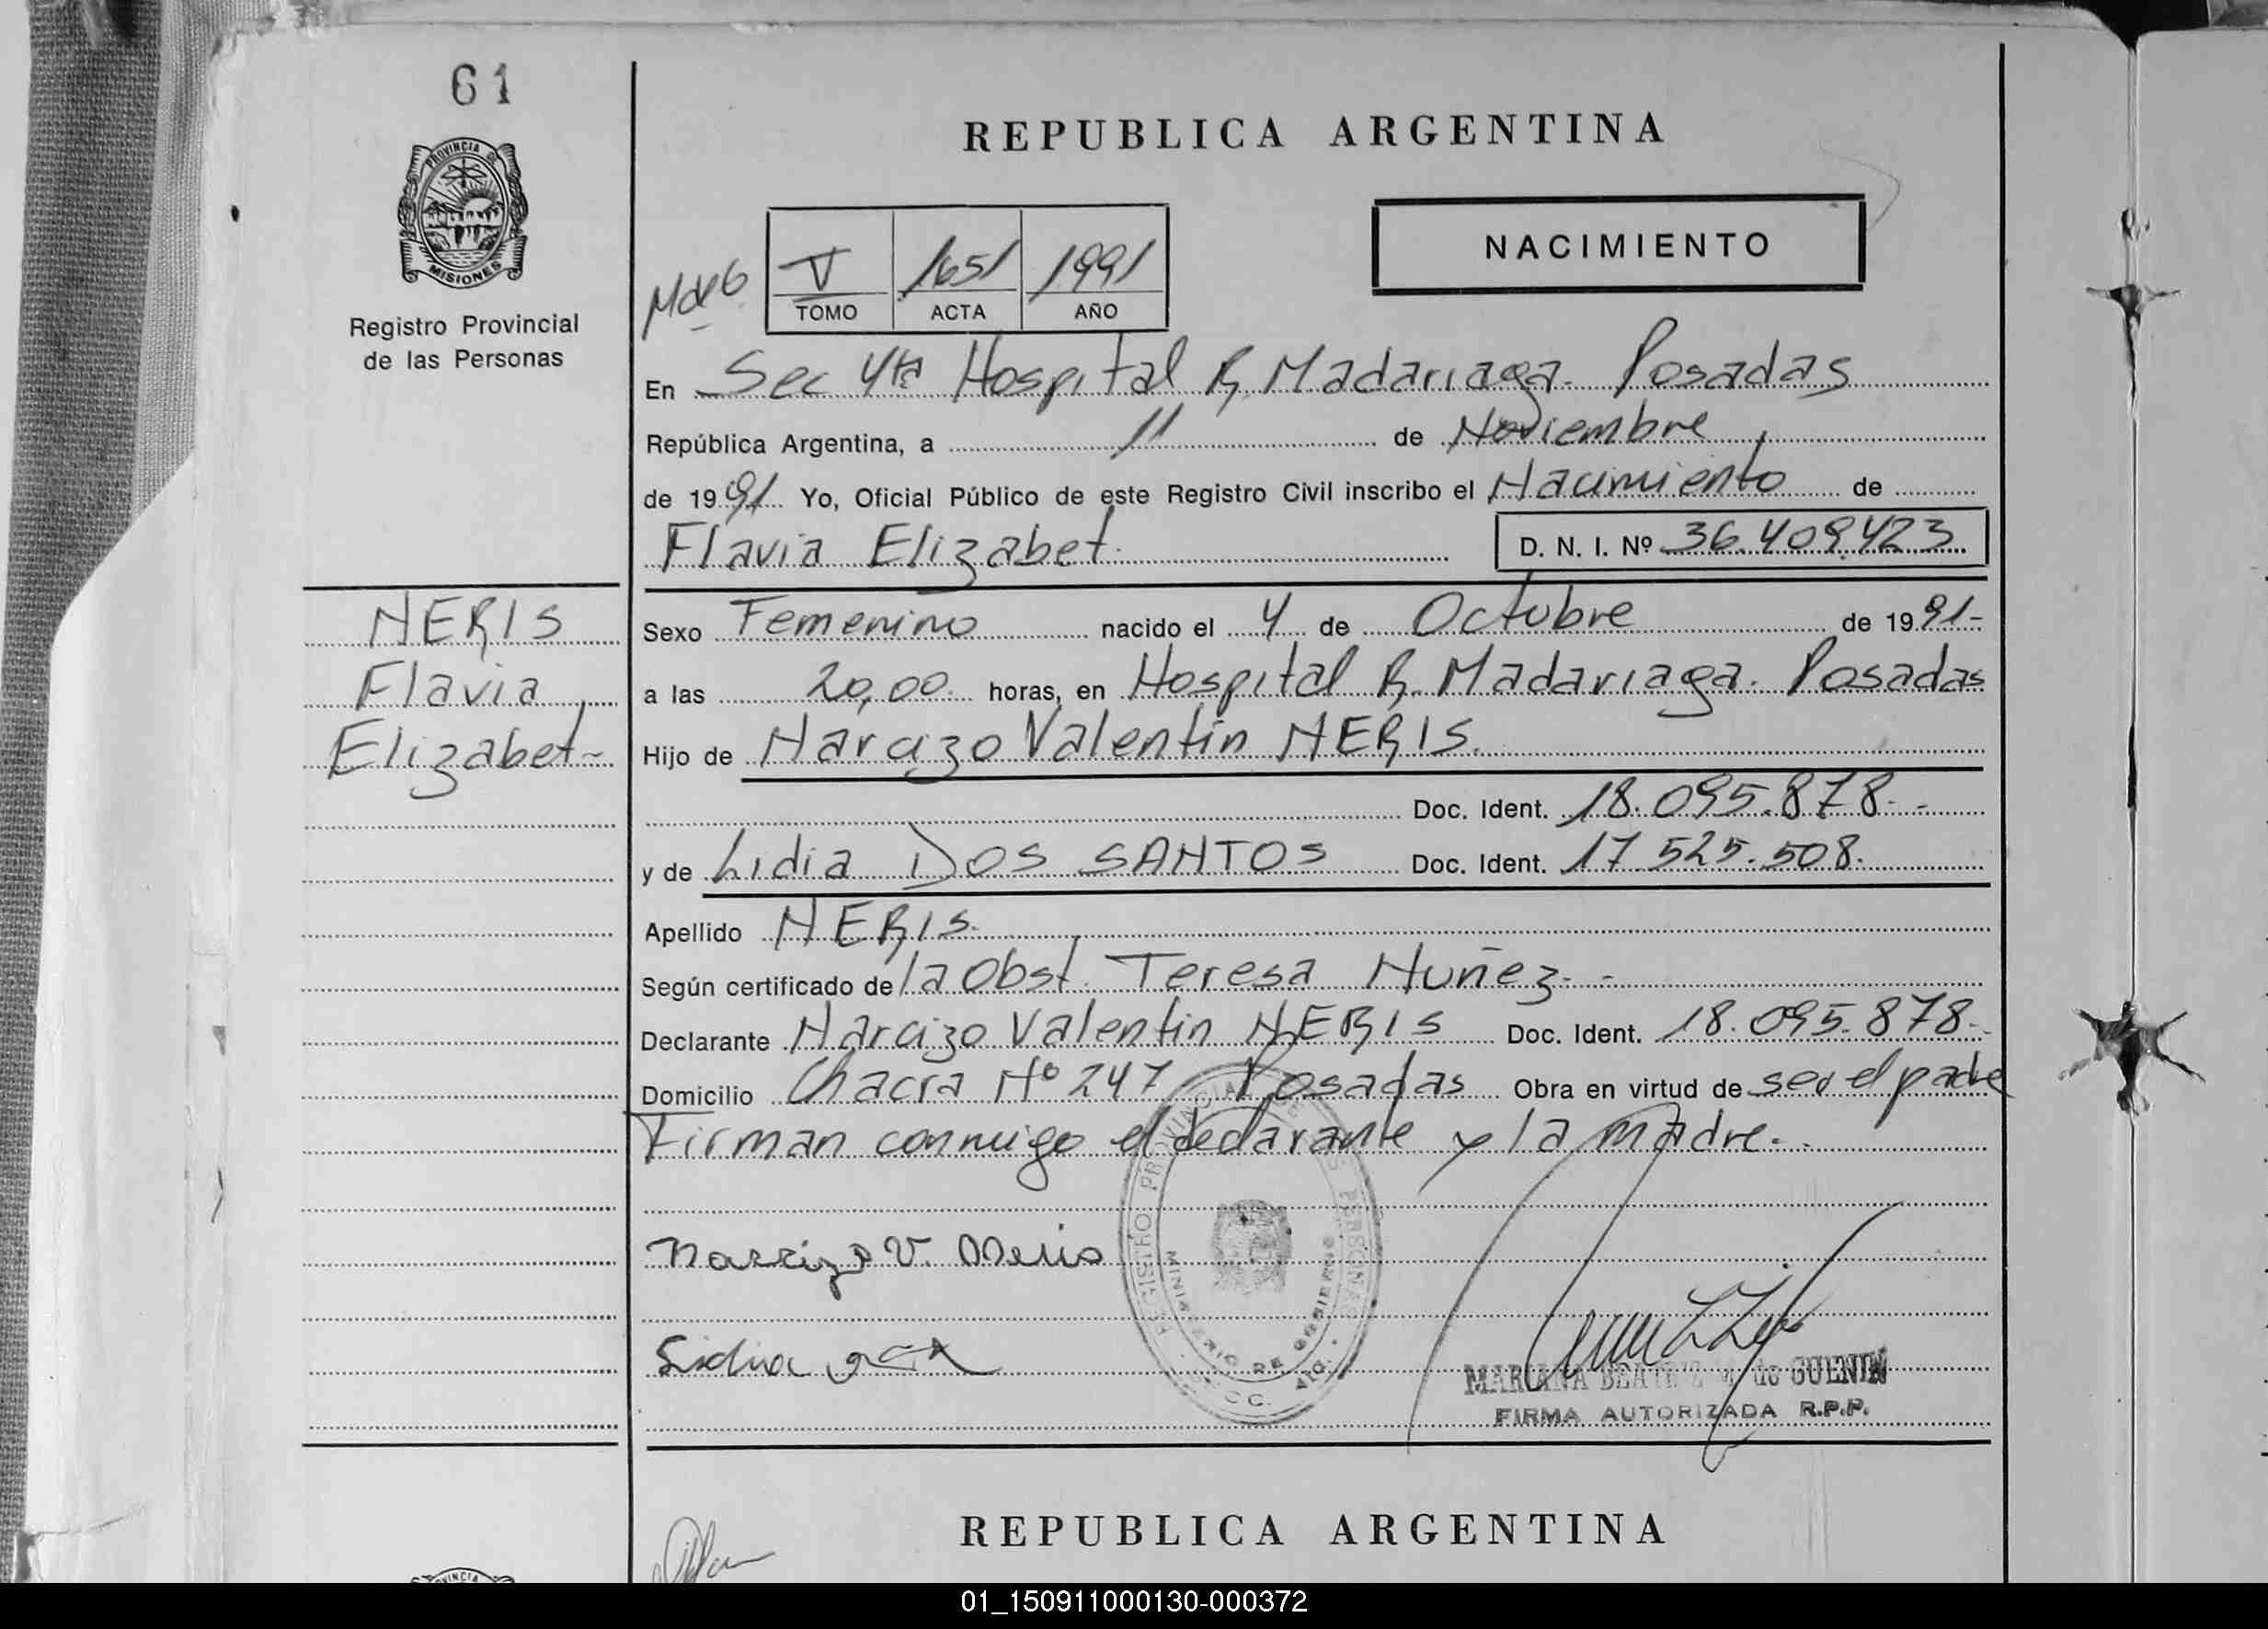 61
PROVINCIA DE
MISIONES
Registro Provincial
de las Personas
REPUBLICA ARGENTINA
NACIMIENTO
V 1651 1991
TOMO ACTA AÑO
En Sec 4ta Hospital R. Madariaga. Posadas
República Argentina, a 11 de Noviembre
de 1991 Yo, Oficial Público de este Registro Civil inscribo el Nacimiento de
Flavia Elizabet. D. N. I. Nº 36.409.423
NERIS
Flavia
Elizabet-
Sexo Femenino nacido el 4 de Octubre de 1991-
a las 20,00 horas, en Hospital R. Madariaga. Posadas
Hijo de Narcizo Valentin NERIS.
Doc. Ident. 18.095.878.-
y de Lidia DOS SANTOS Doc. Ident. 17.525.508.
Apellido NERIS.
Según certificado de la Obst. Teresa Nuñez.-
Declarante Narcizo Valentin NERIS Doc. Ident. 18.095.878.-
Domicilio Chacra Nº 247 Posadas Obra en virtud de ser el padre
Firman conmigo el declarante y la madre.-
Narcizo V. Neris
Lidia
REGISTRO PROVINCIAL DE LAS PERSONAS
MINISTERIO DE GOBIERNO
MARIANA BEATRIZ de GUENIN
FIRMA AUTORIZADA R.P.P.
REPUBLICA ARGENTINA
01_150911000130-000372